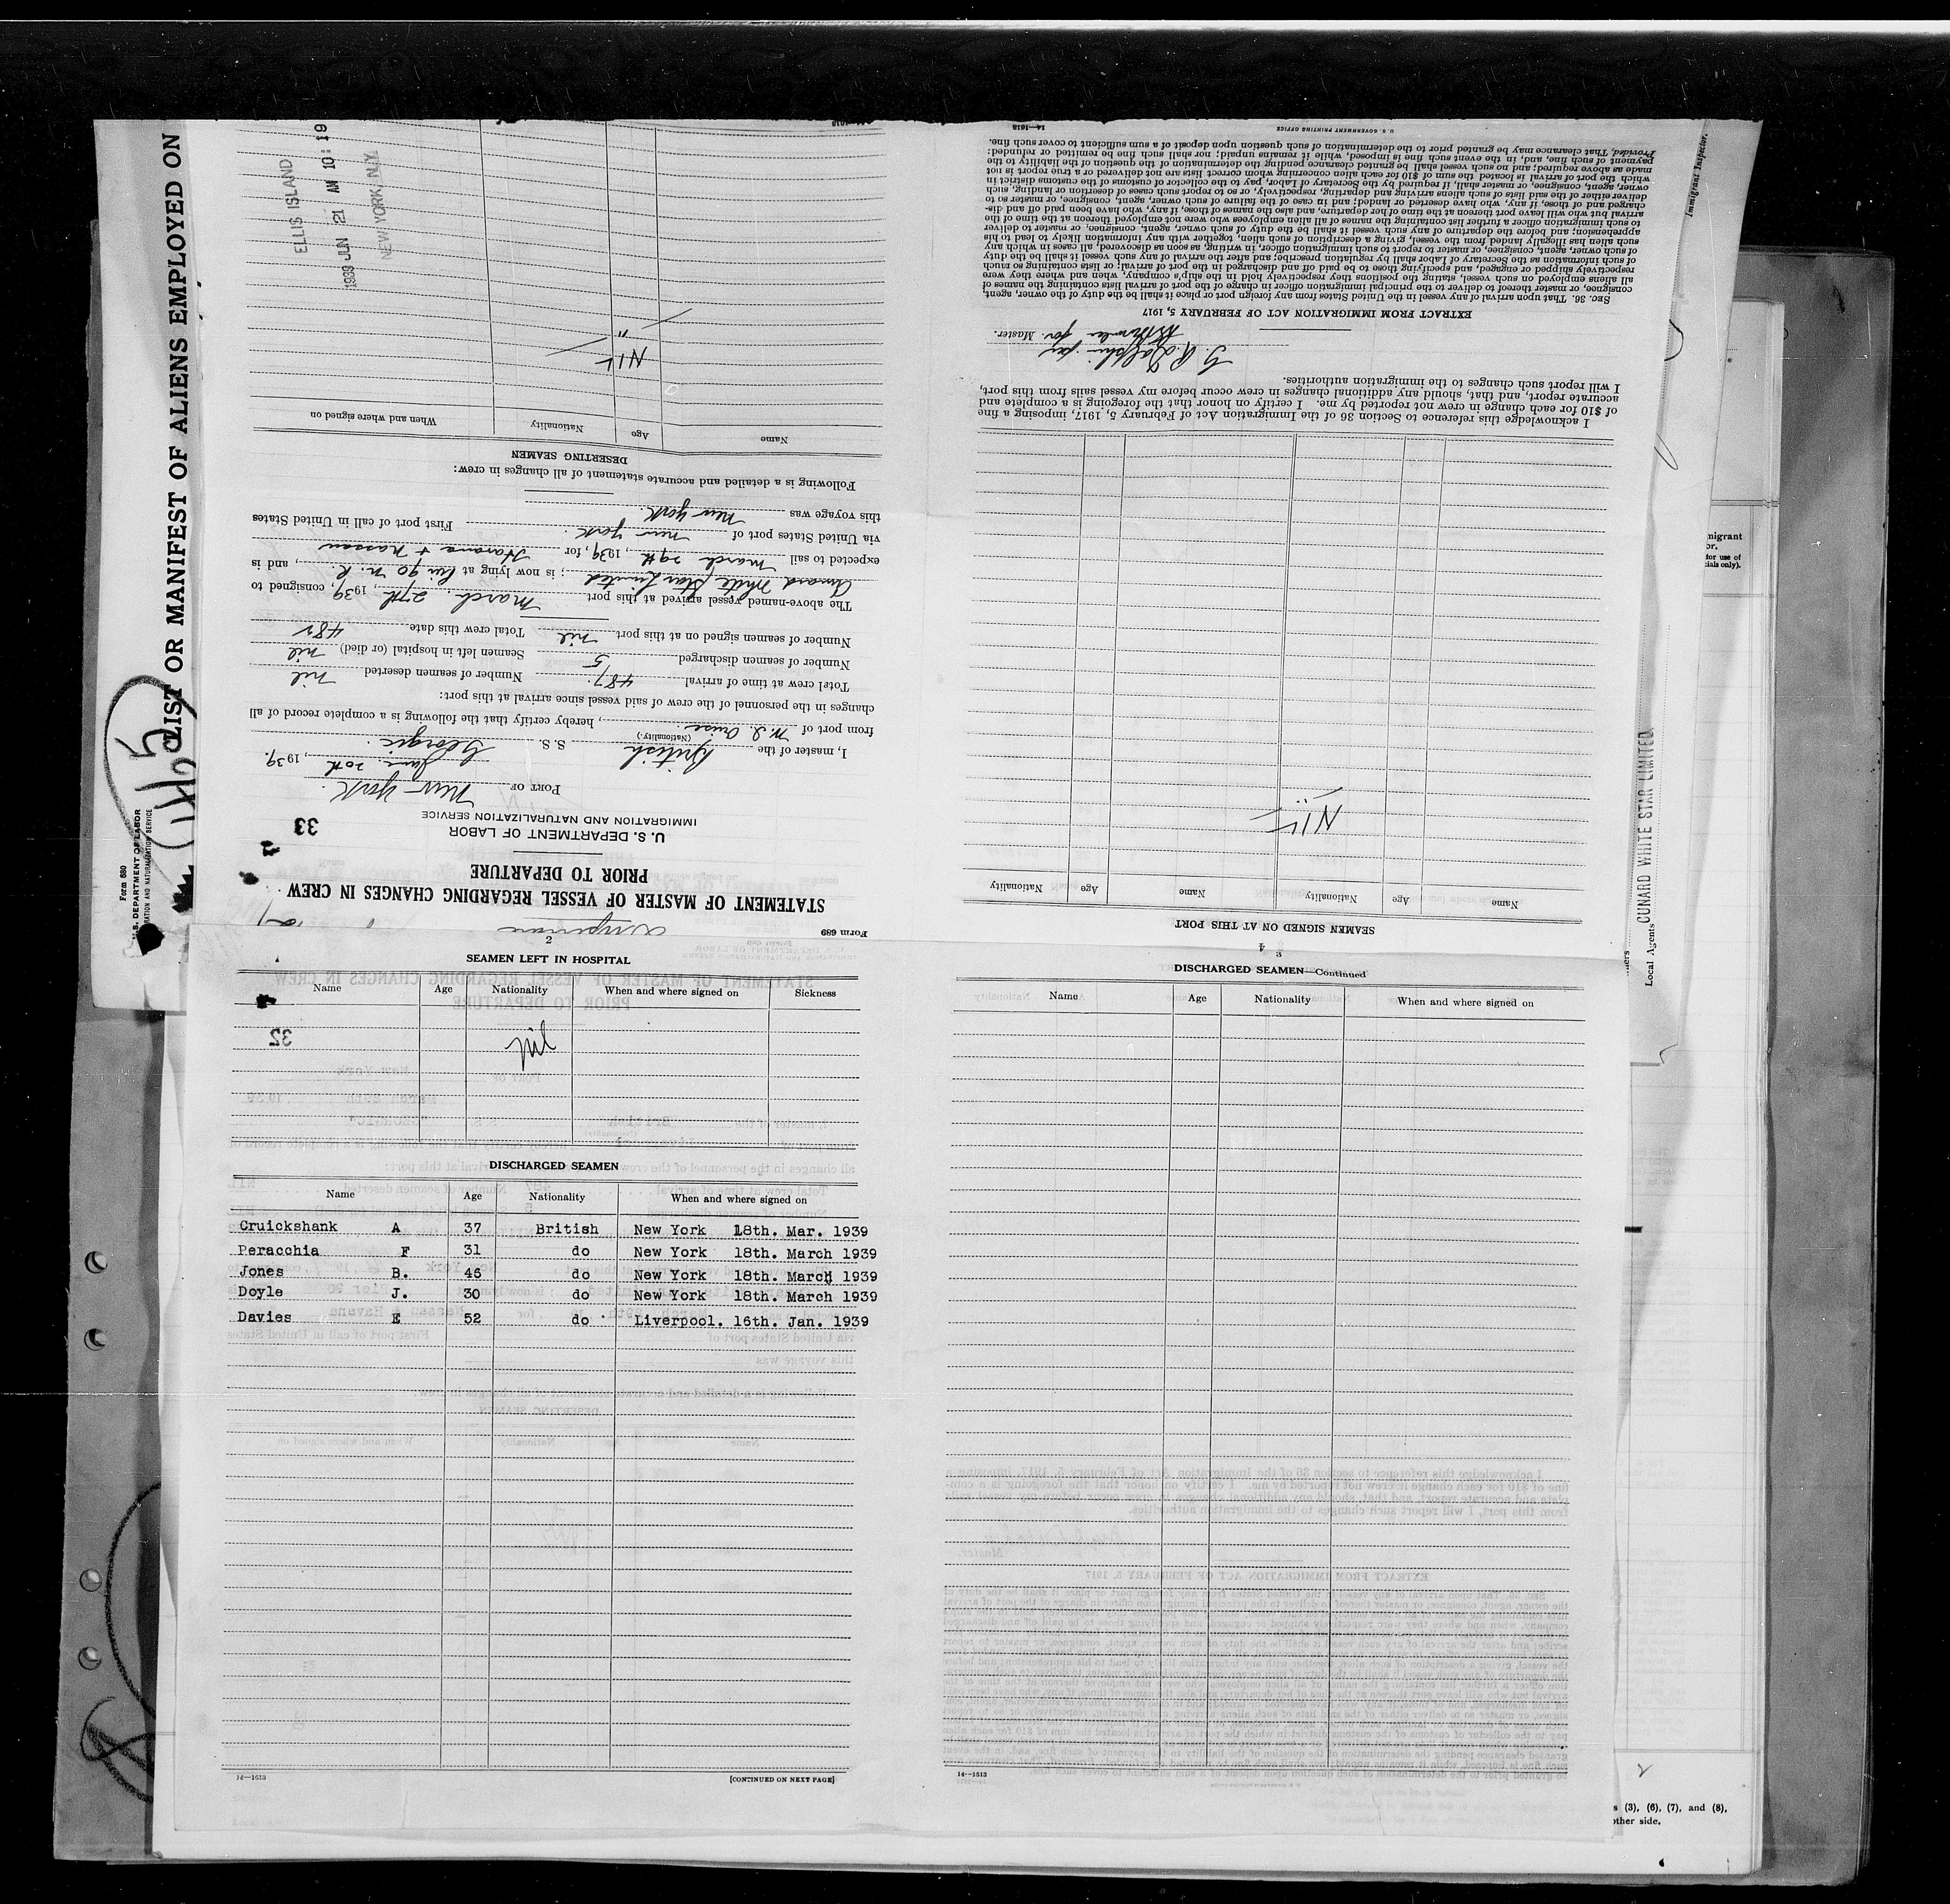 LIST OR MANIFEST OF ALIENS EMPLOYED ON
Form 680
U.S. DEPARTMENT OF LABOR
IMMIGRATION AND NATURALIZATION SERVICE
Form 689
STATEMENT OF MASTER OF VESSEL REGARDING CHANGES IN CREW
PRIOR TO DEPARTURE
U. S. DEPARTMENT OF LABOR
IMMIGRATION AND NATURALIZATION SERVICE
33
PORT OF New York.
June 20th, 1939.
I, master of the British S. S. Georgic.
(Nationality)
from port of W. I. Cruise., hereby certify that the following is a complete record of all
changes in the personnel of the crew of said vessel since arrival at this port:
Total crew at time of arrival 487. Number of seamen deserted nil
Number of seamen discharged 5 Seamen left in hospital (or died) nil
Number of seamen signed on at this port nil Total crew this date 482
The above-named vessel arrived at this port March 27th, 1939, consigned to
Cunard White Star Limited; is now lying at Pier 90 N. R., and is
expected to sail March 29th, 1939, for Havana + Nassau
via United States port of New York. First port of call in United States
this voyage was New York.
Following is a detailed and accurate statement of all changes in crew:
DESERTING SEAMEN
Name Age Nationality When and where signed on
NIL
"
ELLIS ISLAND
1939 JUN 21 AM 10: 19
NEW YORK N.Y.
14—1613
4
SEAMEN SIGNED ON AT THIS PORT
Name Age Nationality Name Age Nationality
NIL
I acknowledge this reference to Section 36 of the Immigration Act of February 5, 1917, imposing a fine
of $10 for each change in crew not reported by me. I certify on honor that the foregoing is a complete and
accurate report, and that, should any additional changes in crew occur before my vessel sails from this port,
I will report such changes to the immigration authorities.
for Master.
EXTRACT FROM IMMIGRATION ACT OF FEBRUARY 5, 1917
SEC. 36. That upon arrival of any vessel in the United States from any foreign port or place it shall be the duty of the owner, agent,
consignee, or master thereof to deliver to the principal immigration officer in charge of the port of arrival lists containing the names of
all aliens employed on such vessel, stating the positions they respectively hold in the ship's company, when and where they were
respectively shipped or engaged, and specifying those to be paid off and discharged in the port of arrival; or lists containing so much
of such information as the Secretary of Labor shall by regulation prescribe; and after the arrival of any such vessel it shall be the duty
of such owner, agent, consignee, or master to report to such immigration officer, in writing, as soon as discovered, all cases in which any
such alien has illegally landed from the vessel, giving a description of such alien, together with any information likely to lead to his
apprehension; and before the departure of any such vessel it shall be the duty of such owner, agent, consignee, or master to deliver
to such immigration officer a further list containing the names of all alien employees who were not employed thereon at the time of the
arrival but who will leave port thereon at the time of her departure, and also the names of those, if any, who have been paid off and dis-
charged and of those, if any, who have deserted or landed; and in case of the failure of such owner, agent, consignee, or master so to
deliver either of the said lists of such aliens arriving and departing, respectively, or so to report such cases of desertion or landing, such
owner, agent, consignee, or master shall, if required by the Secretary of Labor, pay to the collector of customs of the customs district in
which the port of arrival is located the sum of $10 for each alien concerning whom correct lists are not delivered or a true report is not
made as above required; and no such vessel shall be granted clearance pending the determination of the question of the liability to the
payment of such fine, and, in the event such fine is imposed, while it remains unpaid; nor shall such fine be remitted or refunded:
Provided, That clearance may be granted prior to the determination of such question upon deposit of a sum sufficient to cover such fine.
U. S. GOVERNMENT PRINTING OFFICE 14—1613
Immigrant Inspector.
Local Agents CUNARD WHITE STAR LIMITED.
2
SEAMEN LEFT IN HOSPITAL
Name Age Nationality When and where signed on Sickness
nil
32
DISCHARGED SEAMEN
Name Age Nationality When and where signed on
Cruickshank A 37 British New York 18th. Mar. 1939
Peracchia F 31 do New York 18th. March 1939
Jones B. 46 do New York 18th. March 1939
Doyle J. 30 do New York 18th. March 1939
Davies E 52 do Liverpool. 16th. Jan. 1939
14—1613 [CONTINUED ON NEXT PAGE]
3
DISCHARGED SEAMEN—Continued
Name Age Nationality When and where signed on
14—1613
s (3), (6), (7), and (8),
other side.